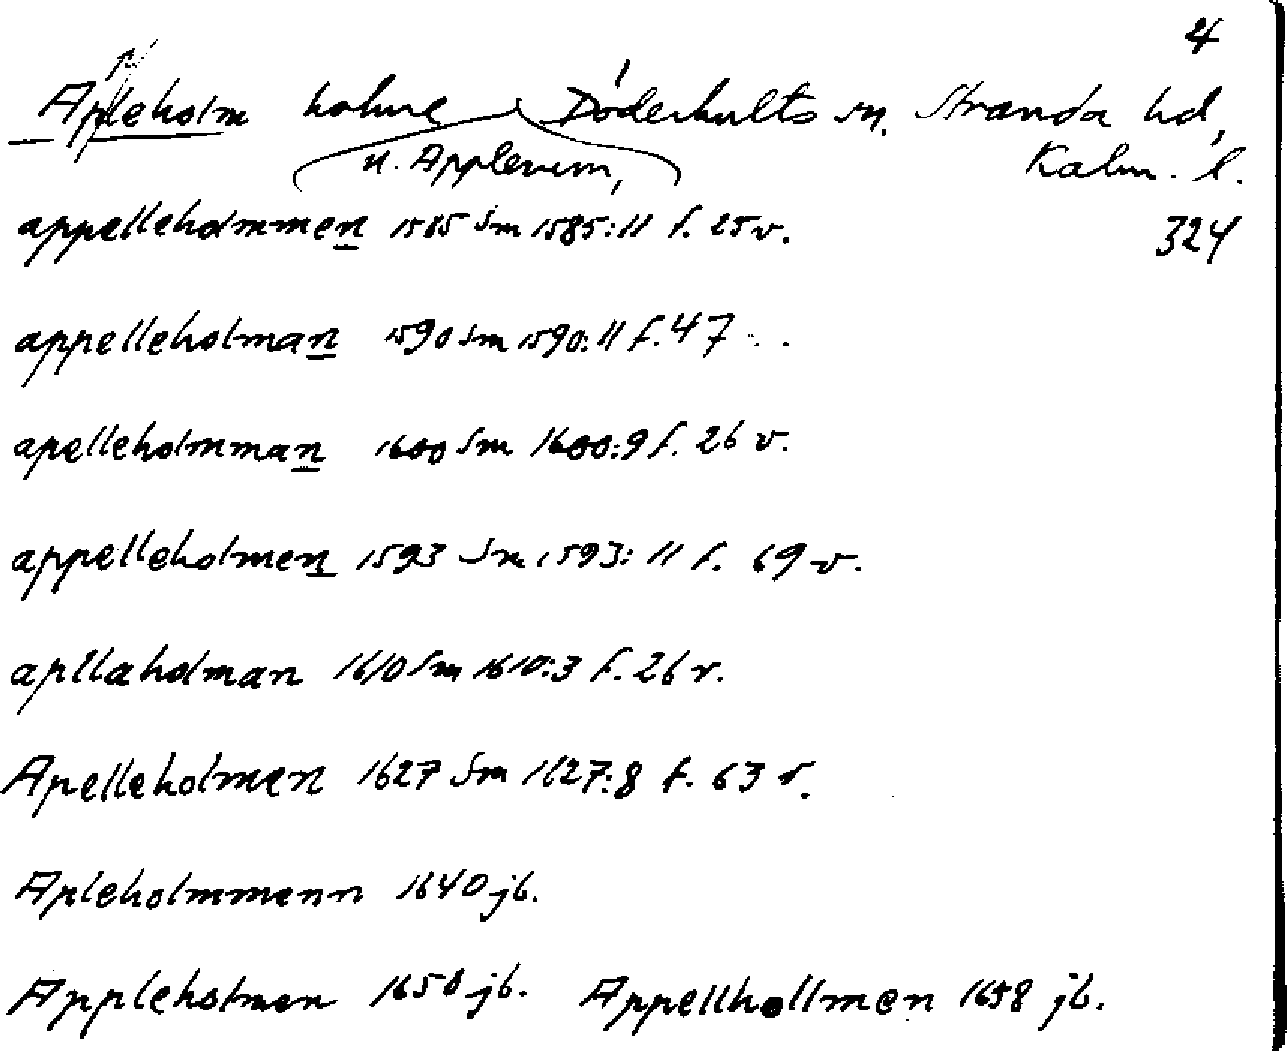 4
Apleholm holme Döderhults sn. Stranda hd,
u. Applerum, Kalm. l.
appelleholmmen 1585 Sm 1585:11 f. 25 v. 324
appelleholman 1590 Sm 1590:11 f. 47
apelleholmman 1600 Sm 1600:9 f. 26 v.
appelleholmen 1593 Sm 1593:11 f. 69 v.
apllaholman 1610 Sm 1610:3 f. 26 r.
Apelleholmen 1627 Sm 1627:8 f. 63 r.
Apleholmmenn 1640 jb.
Appleholmen 1650 jb. Appellhollmen 1658 jb.